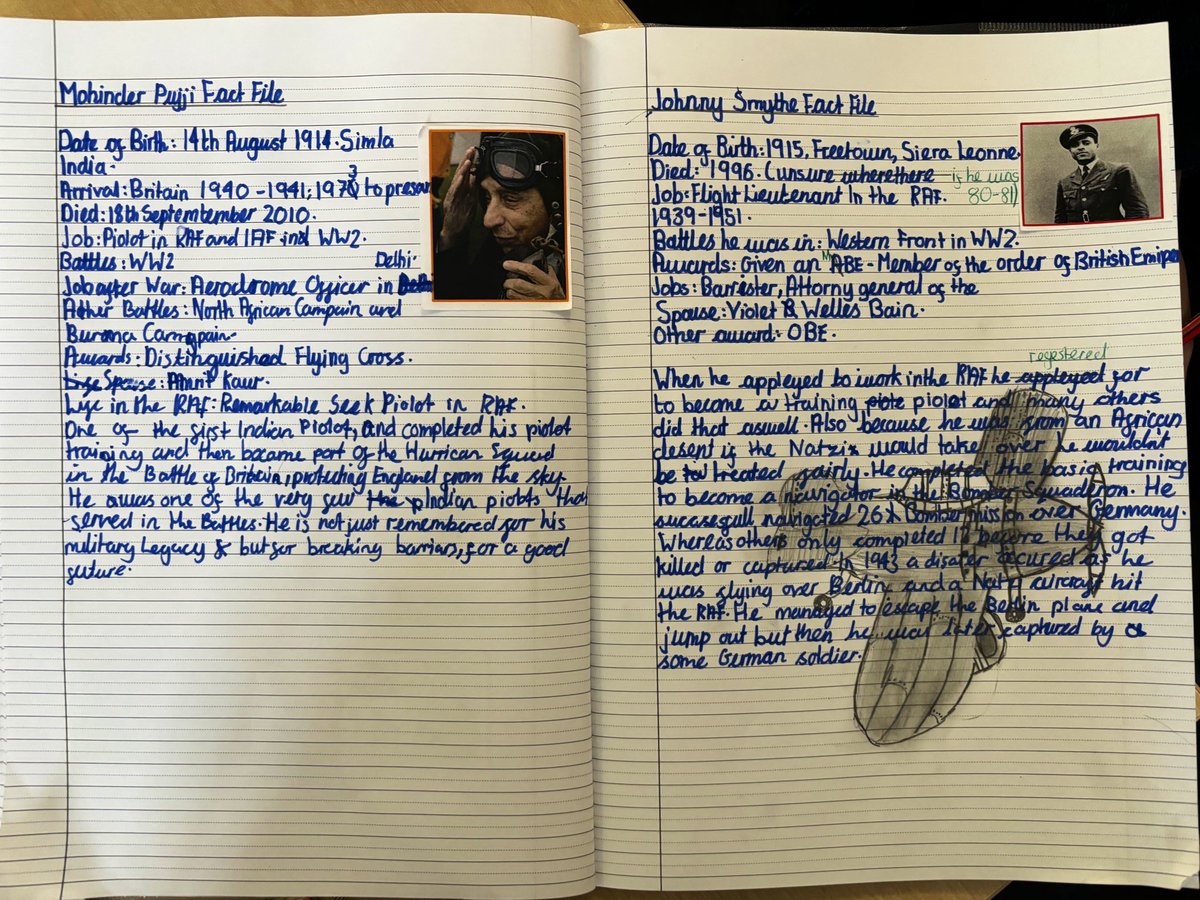 Mohinder Pujji Fact File
Date of Birth: 14th August 1914. Simla
India.
Arrival: Britain 1940 - 1941, 1973 to presan
Died: 18th Septemtember 2010.
Job: Piolot in RAF and IAF in WW2.
Battles: WW2
Job after War: Aerodrome Officer in Delhi.
Ather Battles: North African Campain and
Buroma Campain.
Awards: Distinguished Flying Cross.
Spouse: Amrit Kaur.
Life in the RAF: Remarkable Seek Piolot in RAF.
One of the first Indian Piolot, and completed his piolot
training and then became part of the Hurrican Squad
in the Battle of Britain, protecting England from the sky.
He awas one of the very few Indian piolots that
served in the Battles. He is not just remembered for his
military legacy & but for breaking barriars, for a good
future.
Johnny Smythe Fact File
Date of Birth: 1915, Freetown, Siera Leonne.
Died: 1996. Cunsure wherethere is he was
80-81)
Job: Flight Lieutenant In the RAF.
1939-1951.
Battles he was in: Western Front in WW2.
Awards: Given an MBE - Member of the order of British Emipe
Jobs: Barrester, Attorny general of the
Spouse: Violet & Welles Bain.
Other award: OBE.
registered
When he appleyed to work in the RAF he appleyed for
to become a training piolot and many others
did that aswell. Also because he was from an African
desent if the Natzis would take over he wouldn't
be treated fairly. He completed the basic training
to become a navigator in the Bomber Squaderon. He
sucasefull navigated 26 bomber mission over Germany.
Whereas others only completed 12 before they got
killed or captured. In 1943 a disater accured as he
was flying over Berlin and a Natzi aircraft hit
the RAF. He managed to escape the Berlin plane and
jump out but then he was later captured by
some German soldier.